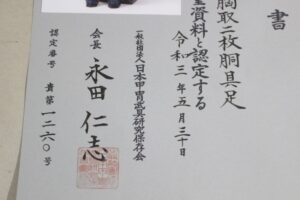 書
胸取二枚胴具足
資料と認定する
令和三年五月三十日
一般社団法人日本甲冑武具研究保存会
会長 永田仁志
認定番号 貴第一二六〇号